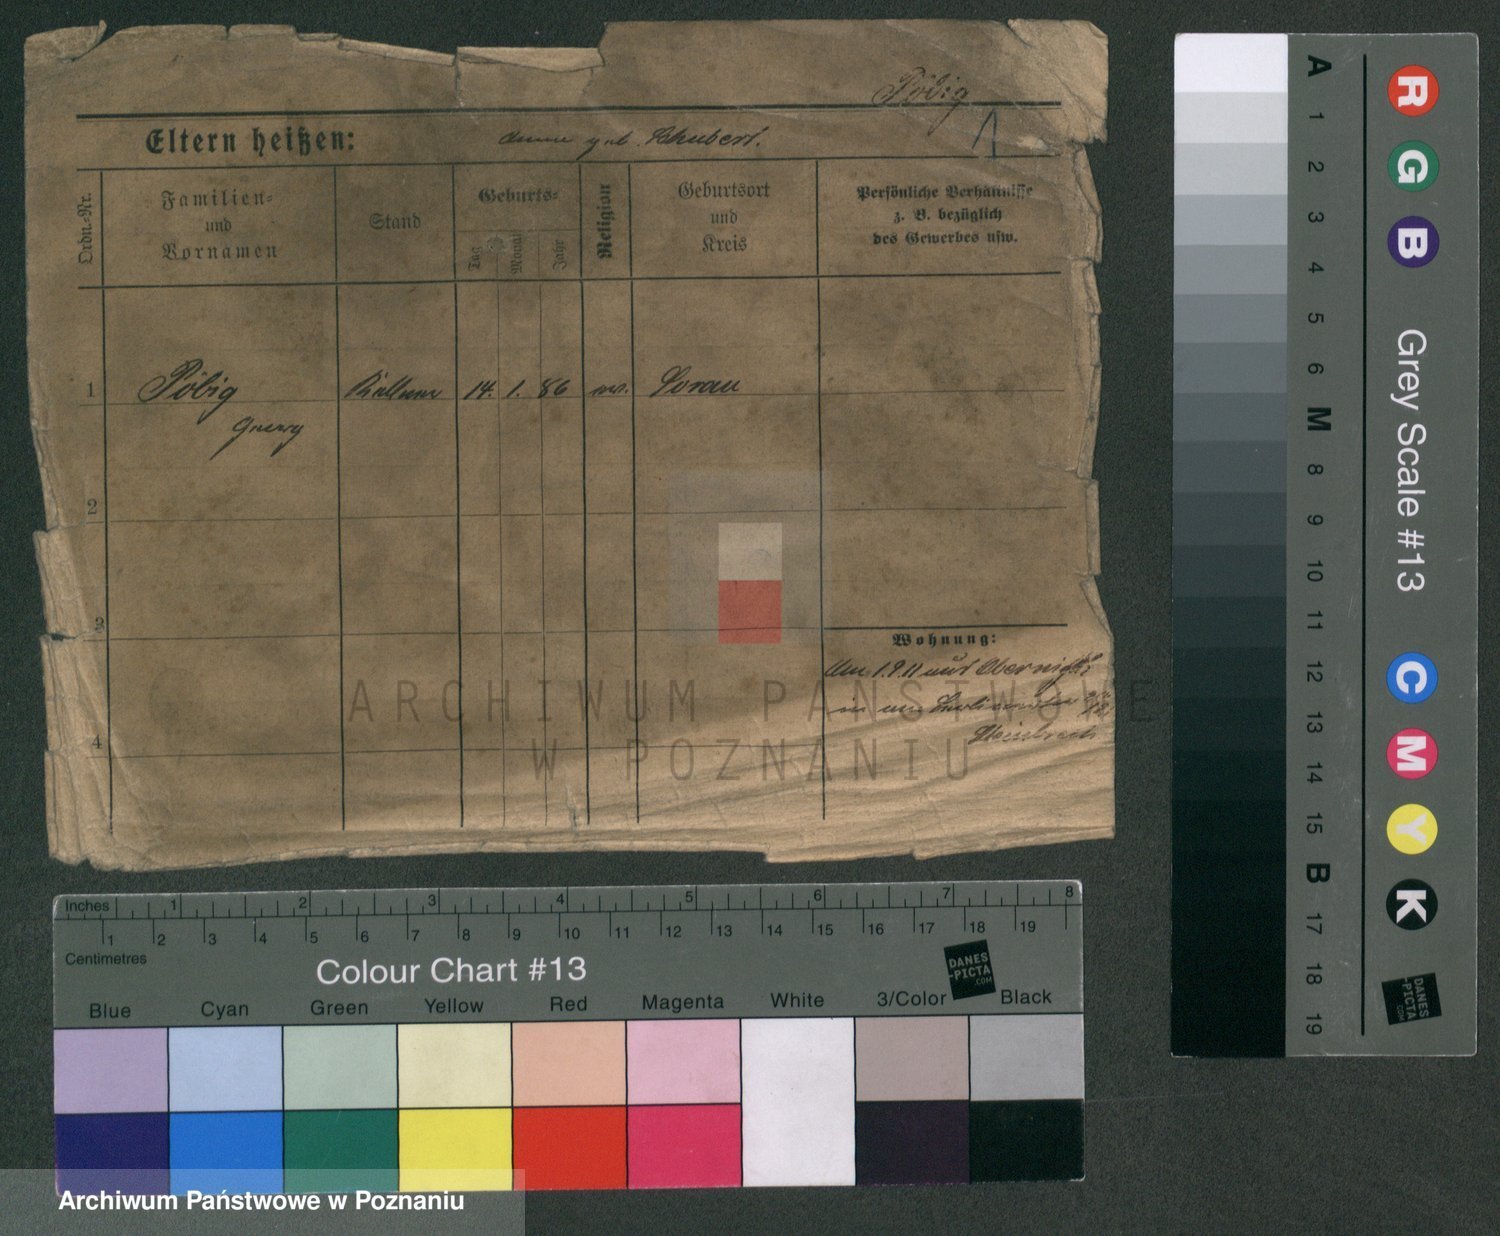 Pöbig
1
Eltern heißen:
geb. Schubert.
Ordn.-Nr.
Familien-
und
Vornamen
Stand
Geburts-
Tag
Monat
Jahr
Religion
Geburtsort
und
Kreis
Persönliche Verhältnisse
z. B. bezüglich
des Gewerbes usw.
1 Pöbig Kellner 14. 1. 86 ev. Sorau
Georg
2
3
4
Wohnung:
Am 1.9.11 aus Obernigk
in
ARCHIWUM PAŃSTWOWE
W POZNANIU
Inches 1 2 3 4 5 6 7 8
1 2 3 4 5 6 7 8 9 10 11 12 13 14 15 16 17 18 19
Centimetres
Colour Chart #13
DANES
-PICTA
.COM
Blue Cyan Green Yellow Red Magenta White 3/Color Black
Archiwum Państwowe w Poznaniu
A 1 2 3 4 5 6 M 8 9 10 11 12 13 14 15 B 17 18 19
R G B
Grey Scale #13
C M Y K
DANES
-PICTA
.COM